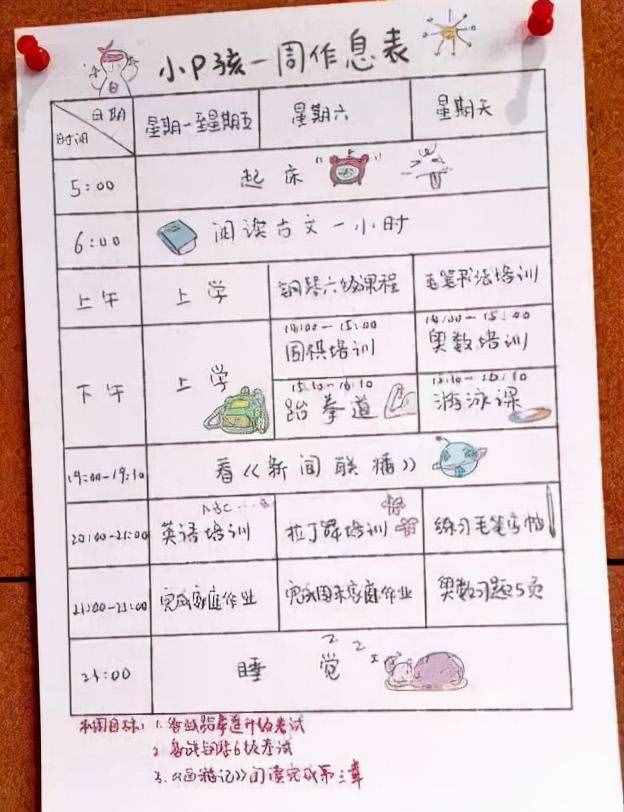 小P孩一周作息表
日期
时间
星期一至星期五 星期六 星期天
5:00 起床
6:00 阅读古文一小时
上午 上学 钢琴六级课程 毛笔书法培训
下午 上学
14:00-15:00 围棋培训
14:00-15:00 奥数培训
15:10-16:10 跆拳道
15:10-16:10 游泳课
19:00-19:10 看《新闻联播》
20:00-21:00 ABC... 英语培训 拉丁舞培训 练习毛笔字帖
21:00-23:00 完成家庭作业 完成周末家庭作业 奥数习题5页
24:00 睡觉 z z z
本周目标: 1. 备战跆拳道升级考试
2. 备战钢琴6级考试
3. 《西游记》阅读完成第三章